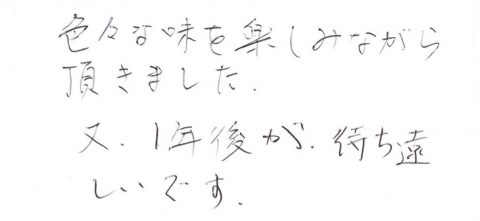 色々な味を楽しみながら
頂きました.
又.1年後が.待ち遠
しいです.